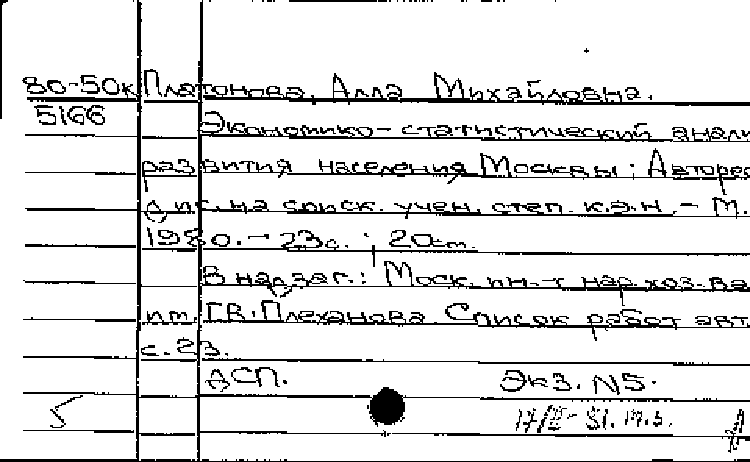 80-50к Платонова, Алла Михайловна.
5166
Экономико-статистический анали
развития населения Москвы: Автореф
дис. на соиск. учен. степ. к.э.н. - М.
1980. - 23с. ; 20см.
В надзаг.: Моск. ин-т нар. хоз-ва
им. Г.В. Плеханова. Список работ авт
с. 23.
АСП. Экз. N5.
5